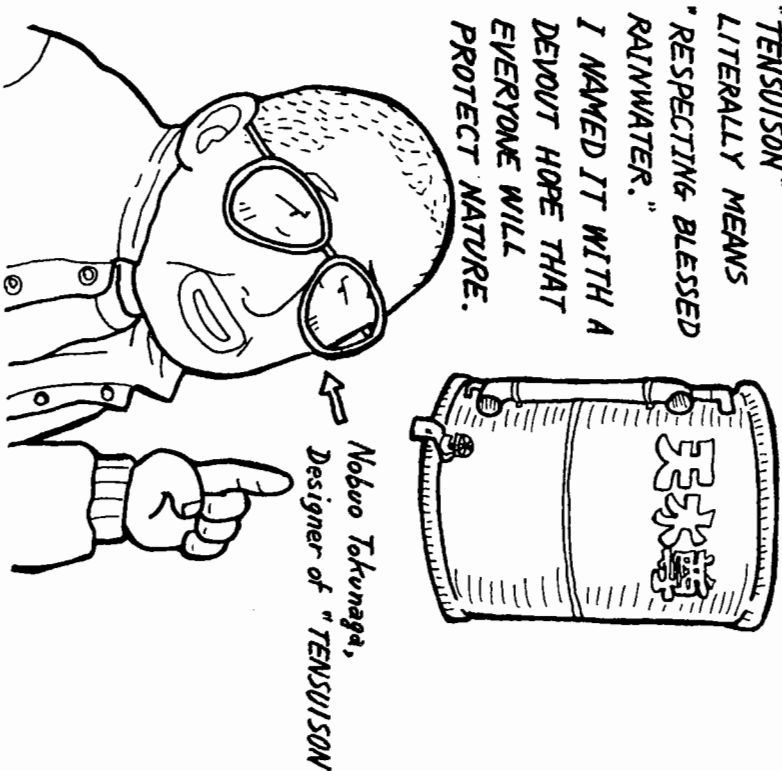 "TENSUISON"
LITERALLY MEANS
"RESPECTING BLESSED
RAINWATER."
I NAMED IT WITH A
DEVOUT HOPE THAT
EVERYONE WILL
PROTECT NATURE.
天水尊
Nobuo Tokunaga,
Designer of "TENSUISON